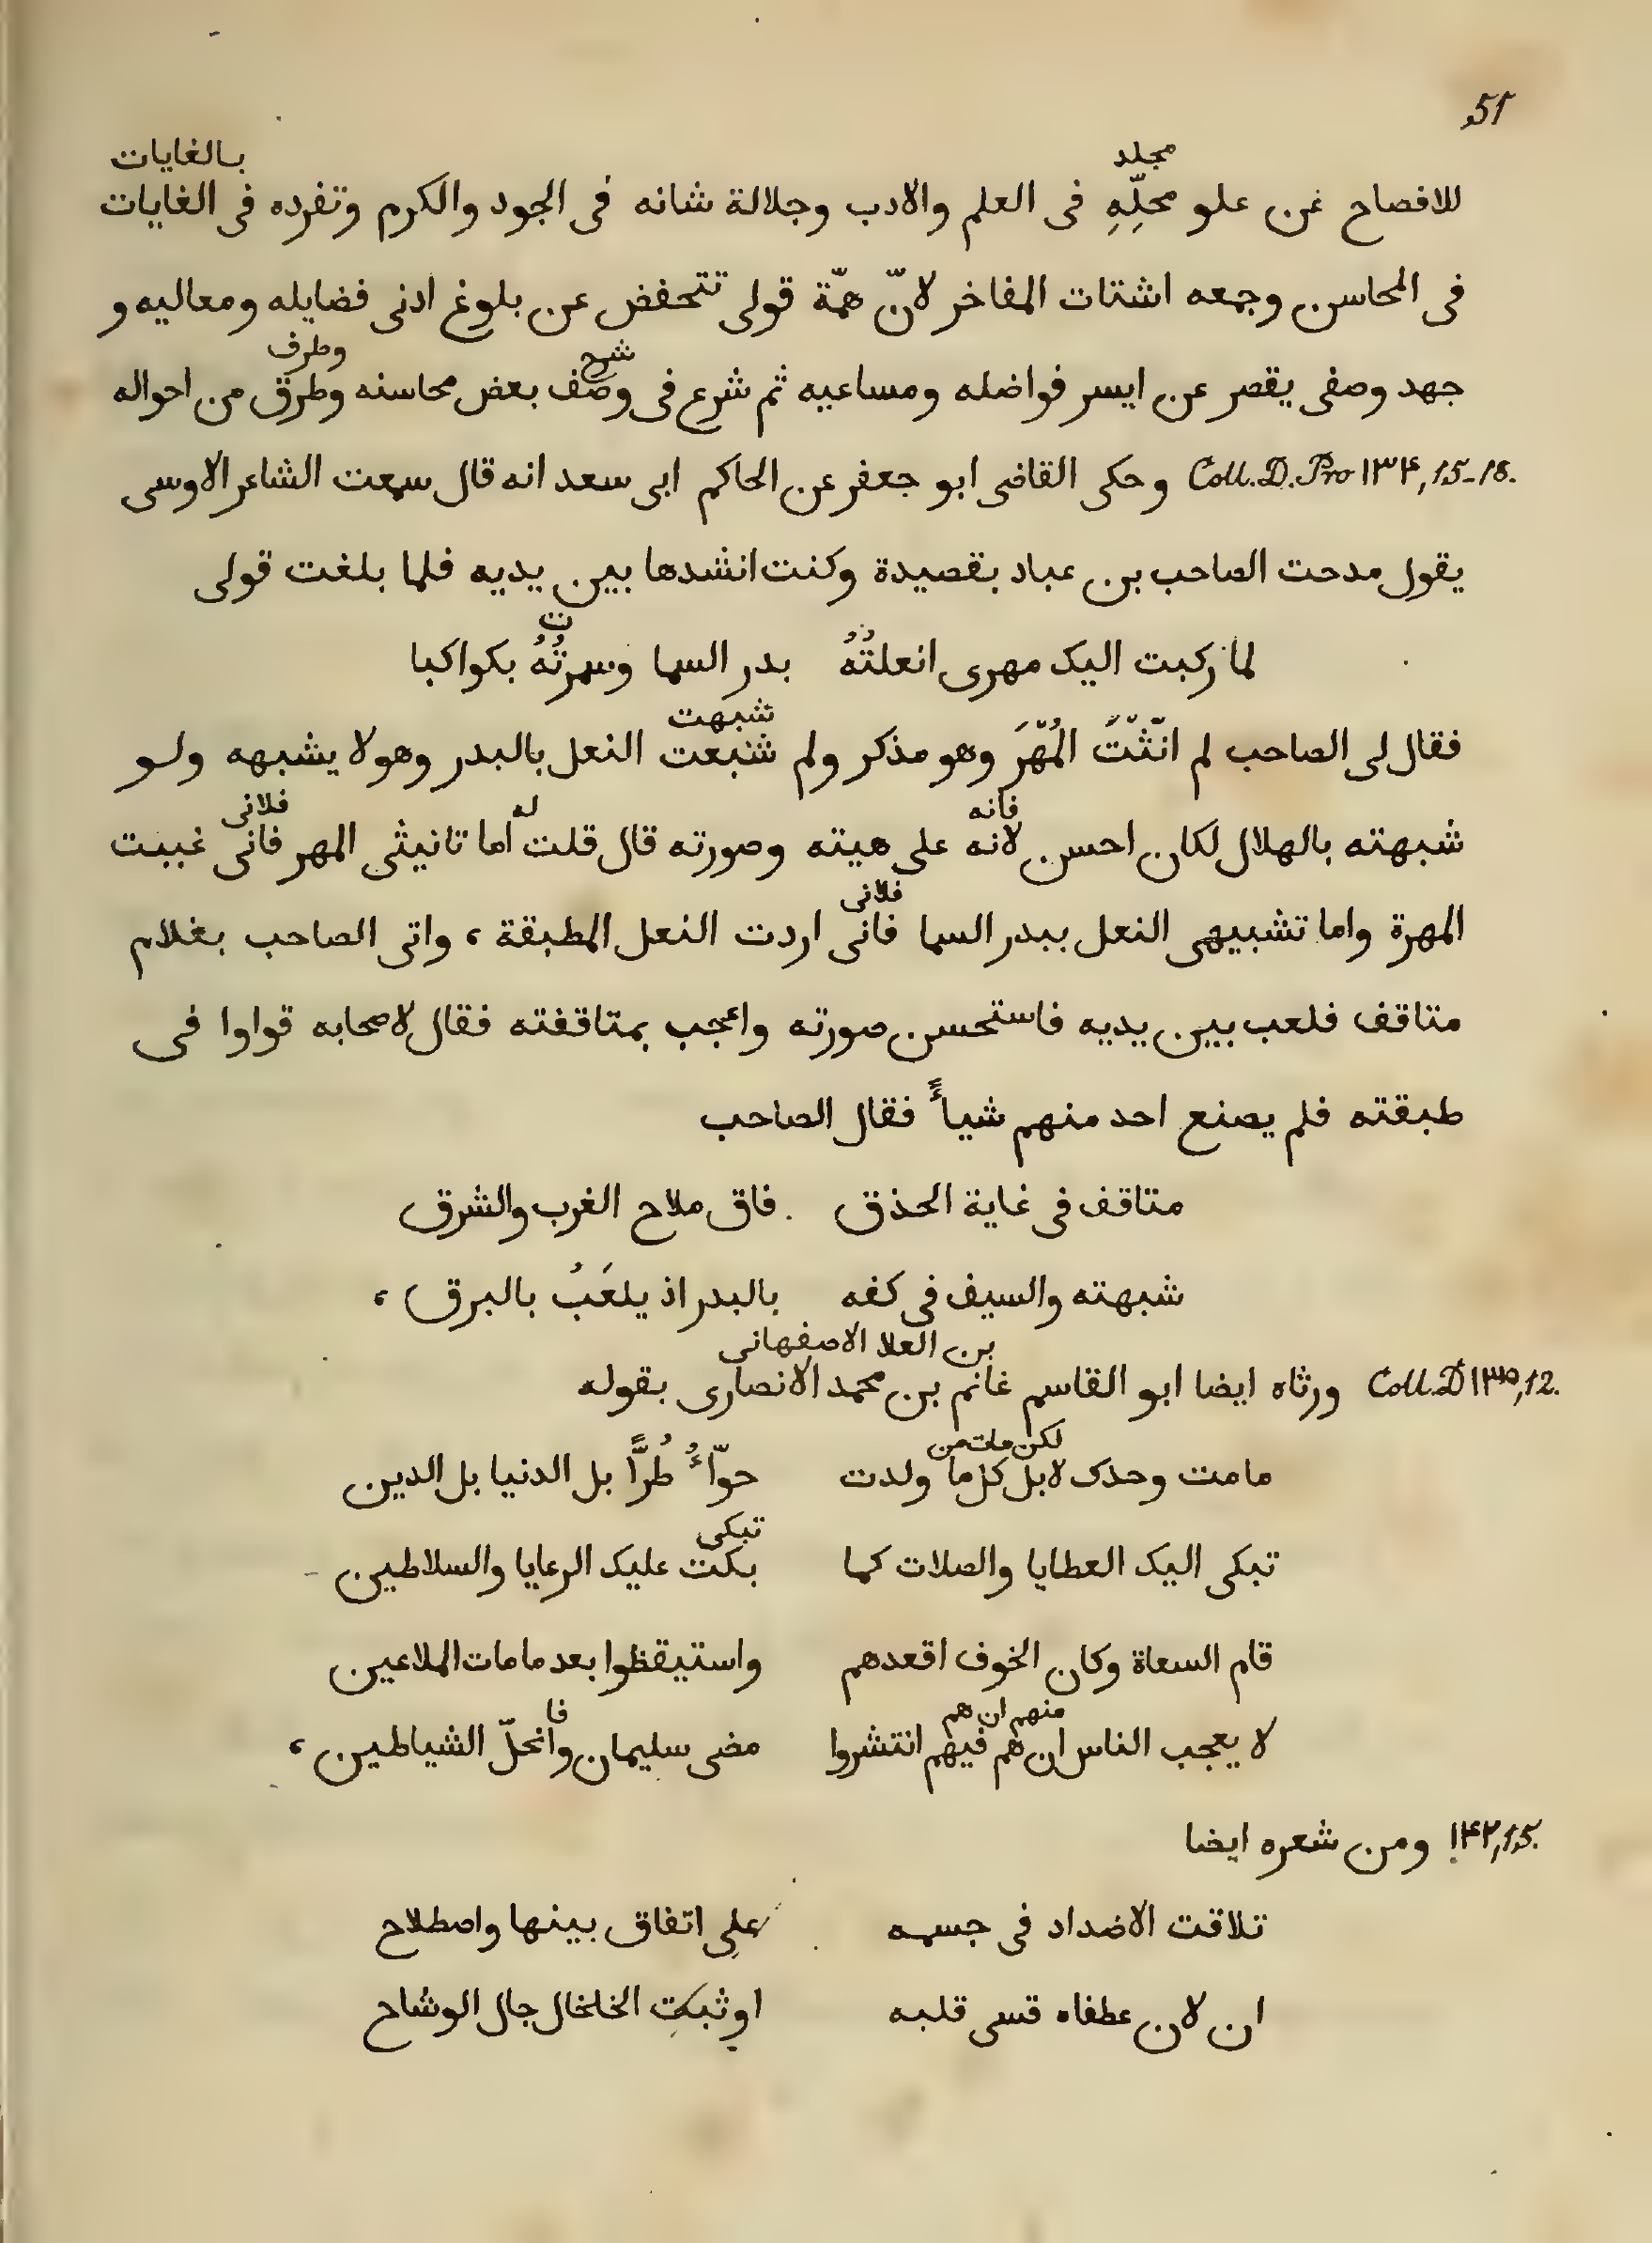 51
مجلد بالغايات
للافصاح عن علو محلِّهِ فى العلم والادب وجلالة شانه فى الجود والكرم وتفرده فى الغايات
فى المحاسن وجمعه اشتات المفاخر لانّ همّة قولى تتخفض عن بلوغ ادنى فضايله ومعاليه و
شرح وطرف
جهد وصفى يقصر عن ايسر فواضله ومساعيه ثم شرع فى وصف بعض محاسنه وطرق من احواله
Coll. D. Pro ۱۳۴, 15-18. وحكى القاضى ابو جعفر عن الحاكم ابى سعد انه قال سمعت الشاعر الاوسى
يقول مدحت الصاحب بن عباد بقصيدة وكنت انشدها بين يديه فلما بلغت قولى
ت
لما ركبت اليك مهرى انعلتُهُ بدر السما وسمرتُهُ بكواكبا
شبهت
فقال لى الصاحب لم انّثْتَ المُهْرَ وهو مذكر ولم شنبعت النعل بالبدر وهو لا يشبهه ولو
فانه له فلانى
شبهته بالهلال لكان احسن لانه على هيته وصورته قال قلت اما تانيثى المهر فانى غببت
فلانى
المهرة واما تشبيهى النعل ببدر السما فانى اردت النعل المطبقة ، واتى الصاحب بغلام
متاقف فلعب بين يديه فاستحسن صورته واعجب بمتاقفته فقال لاصحابه قواوا فى
طبقته فلم يصنع احد منهم شياءً فقال الصاحب
متاقف فى غاية الحذق . فاق ملاح الغرب والشرق
شبهته والسيف فى كفه بالبدر اذ يلعَبُ بالبرق ،
بن العلا الاصفهانى
Coll. D ۱۳۵, 12. ورثاه ايضا ابو القاسم غانم بن محمد الانصارى بقوله
لكن مات من
مامت وحدك لا بل كل ما ولدت حوّاءُ طُرًّا بل الدنيا بل الدين
تبكى
تبكى اليك العطايا والصلات كما بكت عليك الرعايا والسلاطين
قام السعاة وكان الخوف اقعدهم واستيقظوا بعد مامات الملاعين
منهم ان هم فا
لا يعجب الناس ان هم فيهم انتشروا مضى سليمان وانحلّ الشياطين ،
۱۴۲, 15. ومن شعره ايضا
تلاقت الاضداد فى جسمه على اتفاق بينها واصطلاح
ان لان عطفاه قسى قلبه او ثبكت الخلخال جال الوشاح